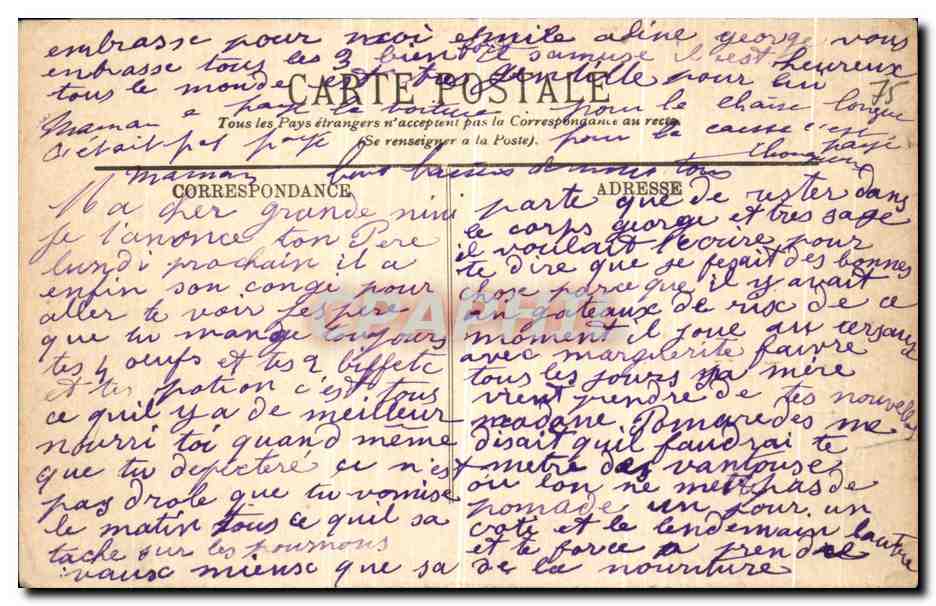 embrasse pour moi emile aline george vous
embrasse tous les 3 bientot samuse il est heureux
tous le monde est tres gentille pour lui
CARTE POSTALE
75
maman a paye la voiture pour la chaise longue
Tous les Pays étrangers n'acceptent pas la Correspondance au recto.
c'était pas payé pour la caisse c'est payé
(Se renseigner a la Poste).
maman bons baisers de nous tous
CORRESPONDANCE
Ma cher grande nini
je t'anonce ton Pere
lundi prochain il a
enfin son congé pour
aller te voir jespère
que tu mange toujours
tes 4 oeufs et tes 2 biffetc
et tes potion c'est tous
ce quil y a de meilleur
nourri toi quand même
que tu depecteré ce n'est
pas drole que tu vomise
le matin tous ce quil sa
tache sur les poumons
vaux mieux que sa
ADRESSE
parte que de rester dans
le corps george et tres sage
il voulait t'ecrire pour
te dire que je fesait des bonnes
chose parce que il y avait
un gateaux de rix de ce
moment il joue au cerceaux
avec marguerite faivre
tous les jours sa mère
vient prendre de tes nouvelles
madame Pomaredes me
disait quil faudrai te
metre des vantouses
ou lon ne met pas de
pomade un jour un
coté et le lendemain lautre
et te force a prendre
de la nouriture
CPAPHIL